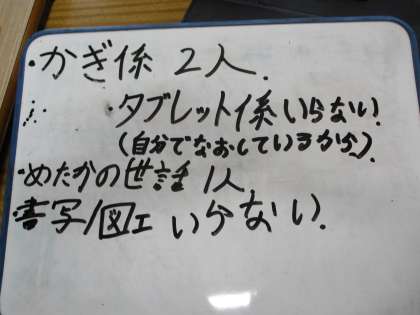 ・かぎ係 2人.
・タブレット係いらない.
(自分でなおしているから).
・めだかの世話 1人
・書写/図工 いらない.